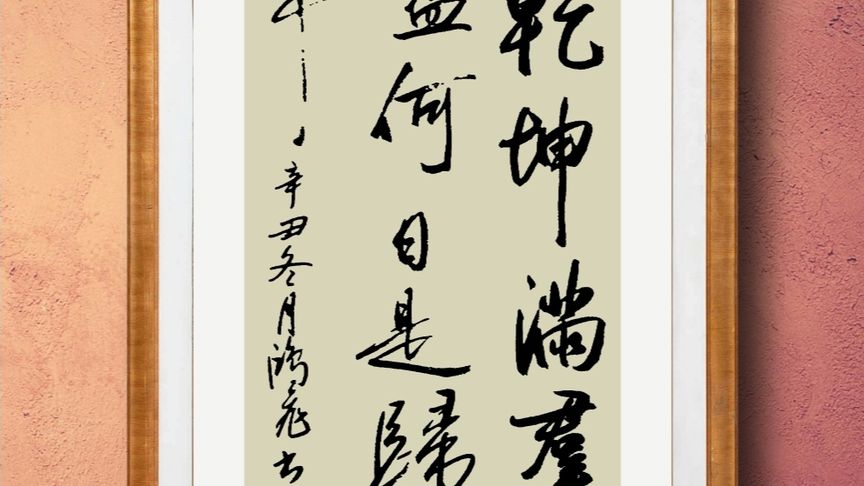 乾坤滿羣
何日是歸
辛丑冬月鴻飛书